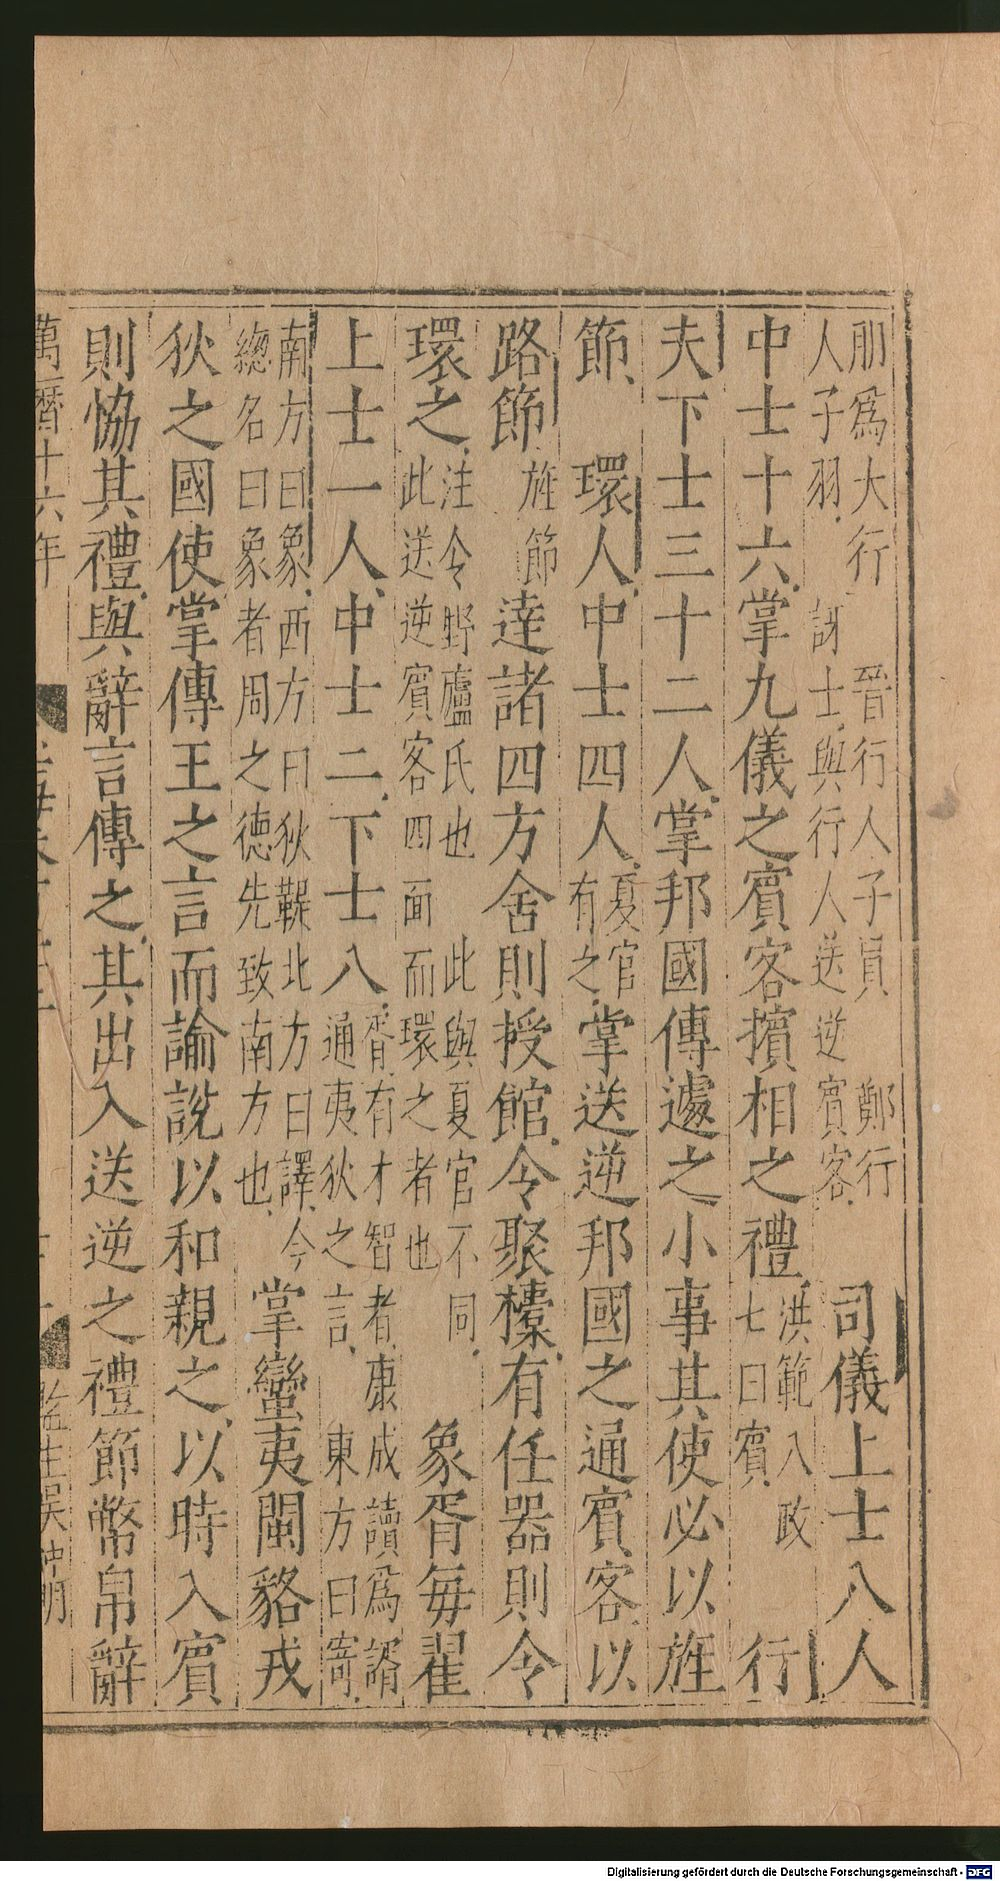 朋爲大行　晉行人子員　鄭行
人子羽　訝士與行人送逆賓客　司儀上士八人
中士十六掌九儀之賓客擯相之禮　洪範八政　七曰賓　行
夫下士三十二人掌邦國傳遽之小事其使必以旌
節　環人中士四人　夏官　有之　掌送逆邦國之通賓客以
路節　旌節　達諸四方舍則授館令聚㯱有任器則令
環之　注令野廬氏也　此與夏官不同　此送逆賓客四面而環之者也　象胥每翟
上士一人中士二下士八　胥有才智者康成讀爲諝　通夷狄之言　東方曰寄
南方曰象西方曰狄鞮北方曰譯今
總名曰象者周之德先致南方也　掌蠻夷閩貉戎
狄之國使掌傳王之言而論說以和親之以時入賓
則恊其禮與辭言傳之其出入送逆之禮節幣帛辭
萬曆十六年　監生吴仲明
Digitalisierung gefördert durch die Deutsche Forschungsgemeinschaft - DFG